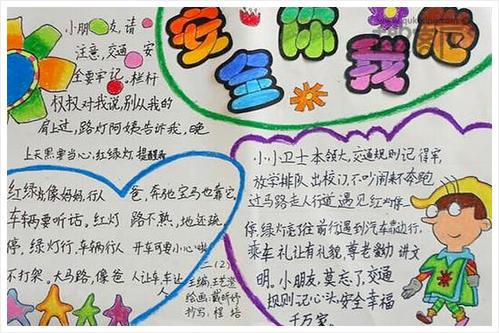 安全你我他
小朋友,请
注意,交通安
全要牢记。栏杆
叔叔对我说,别从我的
肩上过,路灯阿姨告诉我,晚
上天黑要当心,红绿灯提醒我
红绿灯像妈妈,行人
车辆要听话。红灯
停,绿灯行,车辆行人
不打架。大马路,像爸
爸,奔驰宝马也靠它。
路不熟,地还滑,
开车可要小心啦
人让车,车让人
二(2)
主编:王艺
绘画:戴昕婷
抄写:程培
小小卫士本领大,交通规则记得牢,
放学排队出校门,不吵闹来不奔跑
过马路走人行道,遇见红灯停一停
停,绿灯亮往前行,遇到汽车靠边行,
乘车礼让有礼貌,尊老爱幼讲文
明。小朋友,莫忘了,交通
规则记心头,安全幸福
千万家。